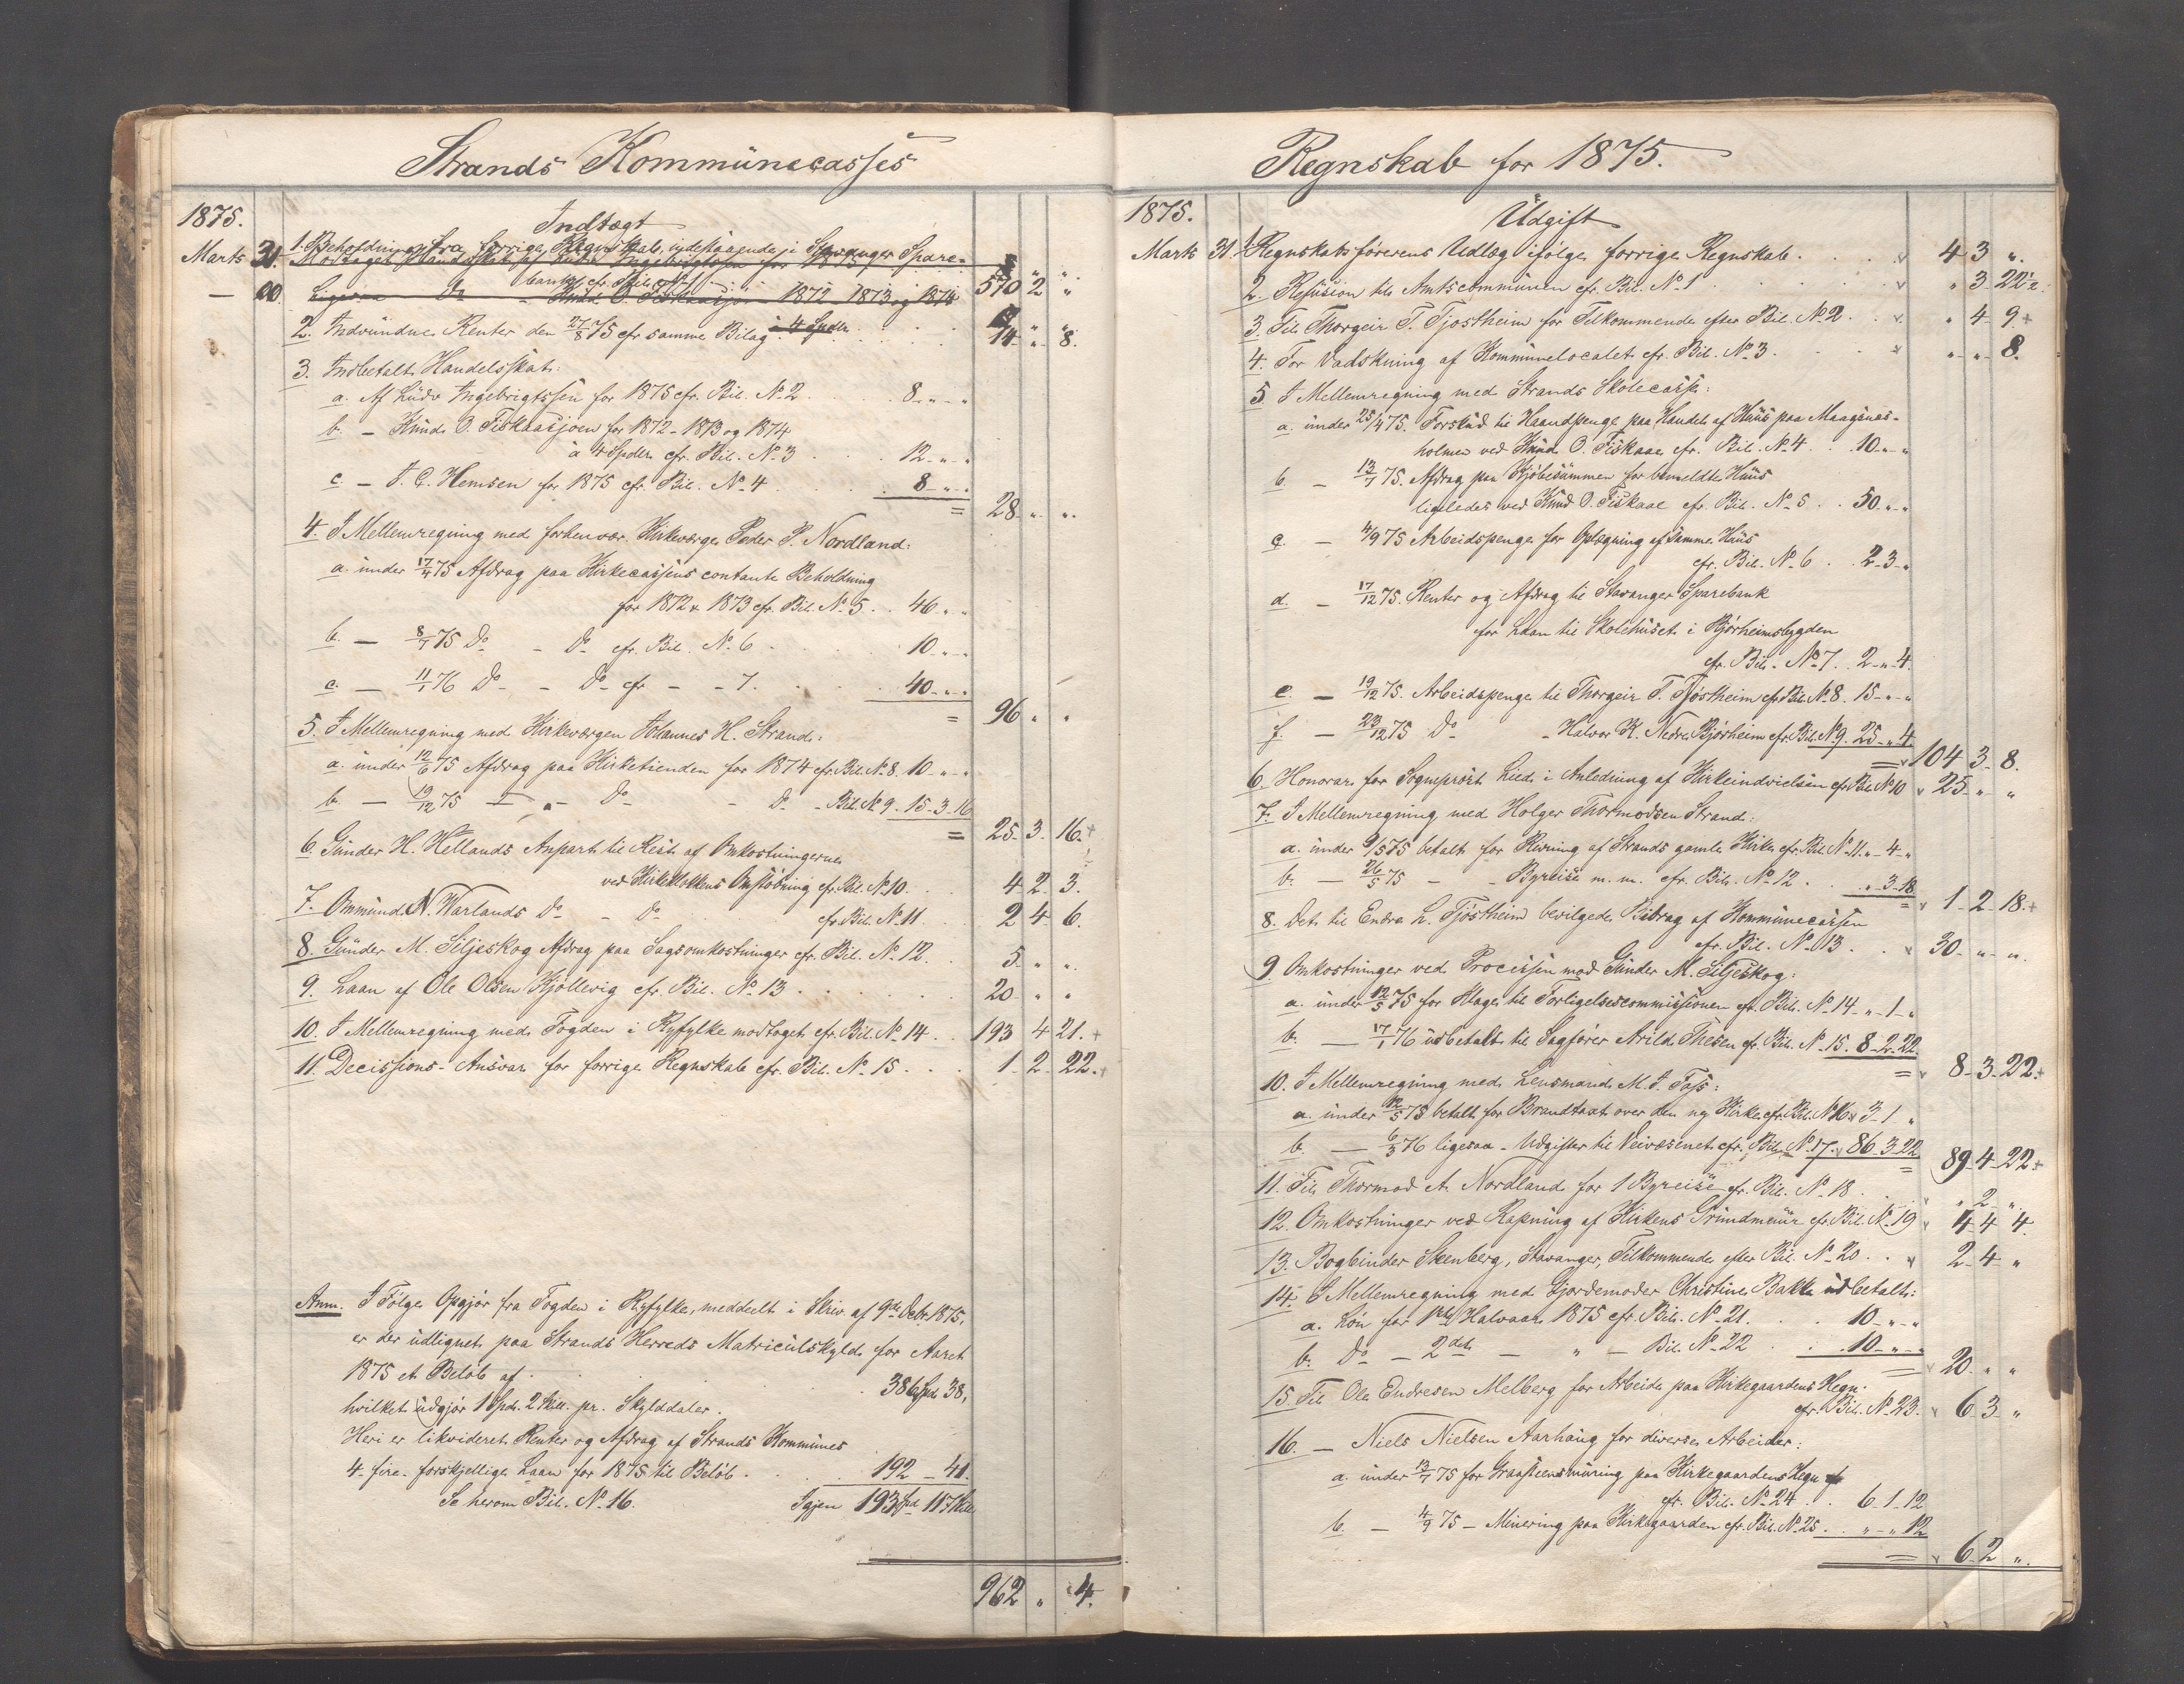 Strands Kommünecasses
1875. Indtægt
Marts 31. 1. Beholdning fra forrige Regnskab, indestaaende i Stavanger Spare-
banke cfr. Bil. No 1 570 2 "
2. Indvundne Renter den 27/8 75 cfr samme Bilag 14 " 8.
3. Indbetalt Handelsskat:
a. Af Lüdv Ingebrigtssen for 1875 cfr. Bil. No 2 8 - " - "
b. - Knüd O. Fiskaasjøen for 1872 - 1873 og 1874
à 4 Spdlr cfr. Bil. No 3 12 - " - "
c - J. C. Hemsen for 1875 cfr Bil. No 4 8 - " - "
= 28 " "
4. I Mellemregning med forhenvær. Kirkeværge Peder P. Nordland:
a. ünder 17/4 75 Afdrag paa Kirkecassens contante Beholdning
for 1872 & 1873 cfr. Bil. No 5 . . 46 " "
b. — 8/7 75 Do - Do cfr. Bil. No 6 10 - " - "
c. — 11/1 76 Do - Do cfr - - 7. 40 - " - "
= 96 " "
5. I Mellemregning med Kirkeværgen Johannes H. Strand:
a. ünder 12/6 75 Afdrag paa Kirketienden for 1874 cfr Bil. No 8. 10 - " - "
b. — 19/12 75 - " - Do - Do - Bil. No 9. 15 - 3 - 16
= 25 3 16.
6. Günder H. Hellands Anpart til Rest af Omkostningerne
ved Kirkeklokkens Omstøbning cfr. Bil. No 10. 4 2 3.
7. Ommünd N. Warlands Do - Do cfr. Bil. No 11 2 4 6.
8. Günder M. Siljeskog Afdrag paa Sagsomkostninger cfr. Bil. No 12. 5 " "
9. Laan af Ole Olsen Kjøllevig cfr. Bil. No 13 20 " "
10. I Mellemregning med Fogden i Ryfylke modtaget cfr. Bil. No 14 193 4 21.
11. Decissions-Ansvar for forrige Regnskab cfr. Bil. No 15 1 - 2 - 22.
Anm. I Følge Opgjør fra Fogden i Ryfylke, meddeelt i Skriv. af 9de Octbr 1875,
er der üdlignet paa Strands Herreds Matricülskyld for Aaret
1875 et Beløb af 386 Spd 38,
hvilket üdgjør 1 Spd. 2 Skill. pr. Skylddaler.
Heri er likvideret Renter og Afdrag af Strands Kommünes
4 - fire - forskjellige Laan for 1875 til Beløb 192 - 41.
Se herom Bil. No 16. Igjen 193 Spd 117 Skill
962 " 4.
Regnskab for 1875.
1875. Üdgift
Marts 31. 1. Regnskabsførerens Udlæg ifølge forrige Regnskab 4 3 "
2. Refüsion til Amtscommünen cfr. Bil. No 1 " 3 - 22 1/2.
3. Til Thorgeir T. Tjøstheim for Tilkommende efter Bil. No 2 " 4 - 9
4. For Vadskning af Kommünelocalet cfr. Bil. No 3. " - " 8.
5. I Mellemregning med Strands Skolecasse:
a. ünder 25/4 75. Forskud til Haandpenge paa Handel af Hüüs paa Maagsnes-
holmen ved Knüd O. Fiskaae cfr. Bil. No 4 . . 10 - " - "
b. - 13/7 75. Afdrag paa Kjøbesümmen for bemeldte Hüüs
ligeledes ved Knüd O. Fiskaae cfr. Bil. No 5 . . 50 - " - "
c. - 4/9 75 Arbeidspenge for Oplægning af samme Hüüs
cfr. Bil. No 6 . . 2 - 3 - "
d. - 17/12 75. Renter og Afdrag til Stavanger Sparebank
for Laan til Skolehüset i Bjørheimsbygden
cfr. Bil. No 7. . 2 - " - 4.
e. - 19/12 75. Arbeidspenge til Thorgeir T. Tjøstheim cfr Bil. No 8. 15 - " - "
f. - 23/12 75 Do - Halvor K. Nedre Bjørheim cfr. Bil. No 9. 25 - " - 4
= 104 3 - 8.
6. Honorar for Sogneprest Lied i Anledning af Kirkeindvielsen cfr Bil. No 10 25 - " "
7. I Mellemregning med Holger Thormodsen Strand:
a. ünder 9/5 75 betalt for Rivning af Strands gamle Kirke cfr. Bil. No 11. " - 4 - "
b. — 26/5 75 - - Byreise m. m. cfr. Bil. No 12 . . " - 3 - 18
= 1 - 2 - 18.
8. Det til Endre L. Tjøstheim bevilgede Bidrag af Kommünecassen
cfr. Bil. No 13. 30 - " - "
9. Omkostninger ved Processen mod Günder M. Siljeskog:
a. ünder 12/5 75 for Klage til Forligelsescommissionen cfr. Bil. No 14 - " - 1 - "
b. — 17/1 76 üdbetalt til Sagfører Arild Thesen cfr. Bil. No 15. 8 - 2 - 22.
= 8 - 3 - 22.
10. I Mellemregning med Lensmand M. T. Foss:
a. ünder 12/5 75 betalt for Brandtaxt over den ny Kirke cfr. Bil. No 16 3 - 1 - "
b. — 6/3 76 ligesaa - Udgifter til Veivæsenet cfr. Bil. No 17. 86 - 3 - 22
= 89 - 4 - 22.
11. Til Thormod A. Nordland for 1 Byreise cfr. Bil. No 18 . " 2 - "
12. Omkostninger ved Rapning af Kirkens Gründmüür cfr. Bil. No 19 4 4 4.
13. Bogbinder Steenberg, Stavanger, Tilkommende efter Bil. No 20 . . 2 - 4 - "
14. I Mellemregning med Gjordemoder Christine Bakke udbetalt:
a. Løn for 1ste Halvaar 1875 cfr. Bil. No 21. 10 - " - "
b. Do - 2det — " — Bil. No 22 10 - " - "
= 20 " "
15. Til Ole Endresen Melberg for Arbeide paa Kirkegaardens Hegn:
cfr. Bil. No 23. 6 3 - "
16. — Niels Nielsen Aarhaüg for diverse Arbeider:
a. ünder 13/7 75 for Graasteensmüring paa Kirkegaardens Hegn
cfr. Bil. No 24 . . 6 - 1 - 12
b. — 4/9 75 - Minering paa Kirkegaarden cfr. Bil. No 25 . . " - " 12
= 6 2 "